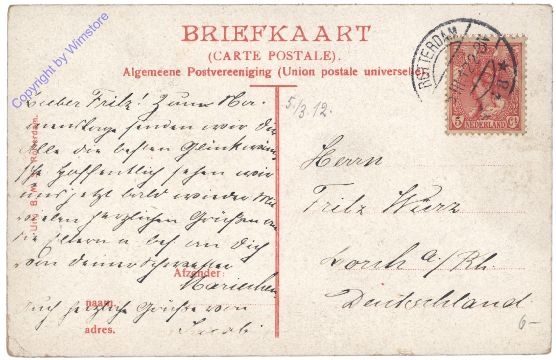 BRIEFKAART
(CARTE POSTALE).
Algemeene Postvereeniging (Union postale universelle).
Copyright by Wimstore
ROTTERDAM
5 NEDERLAND Ct
5/3.12.
Lieber Fritz! Zum Na-
menstage senden wir Dir
Alle die besten Glückwün-
sche Hoffentlich sehen wir
uns jetzt bald wieder Mit
vielen herzlichen Grüßen an
die Eltern u. bes. an Dich
von Deiner Schwester
Afzender:
Mariechen
naam.
Auch herzliche Grüße von
adres.
Jacob
Herrn
Fritz Wurz
Lorch a/Rh.
Deutschland
6-
Rotterdam.